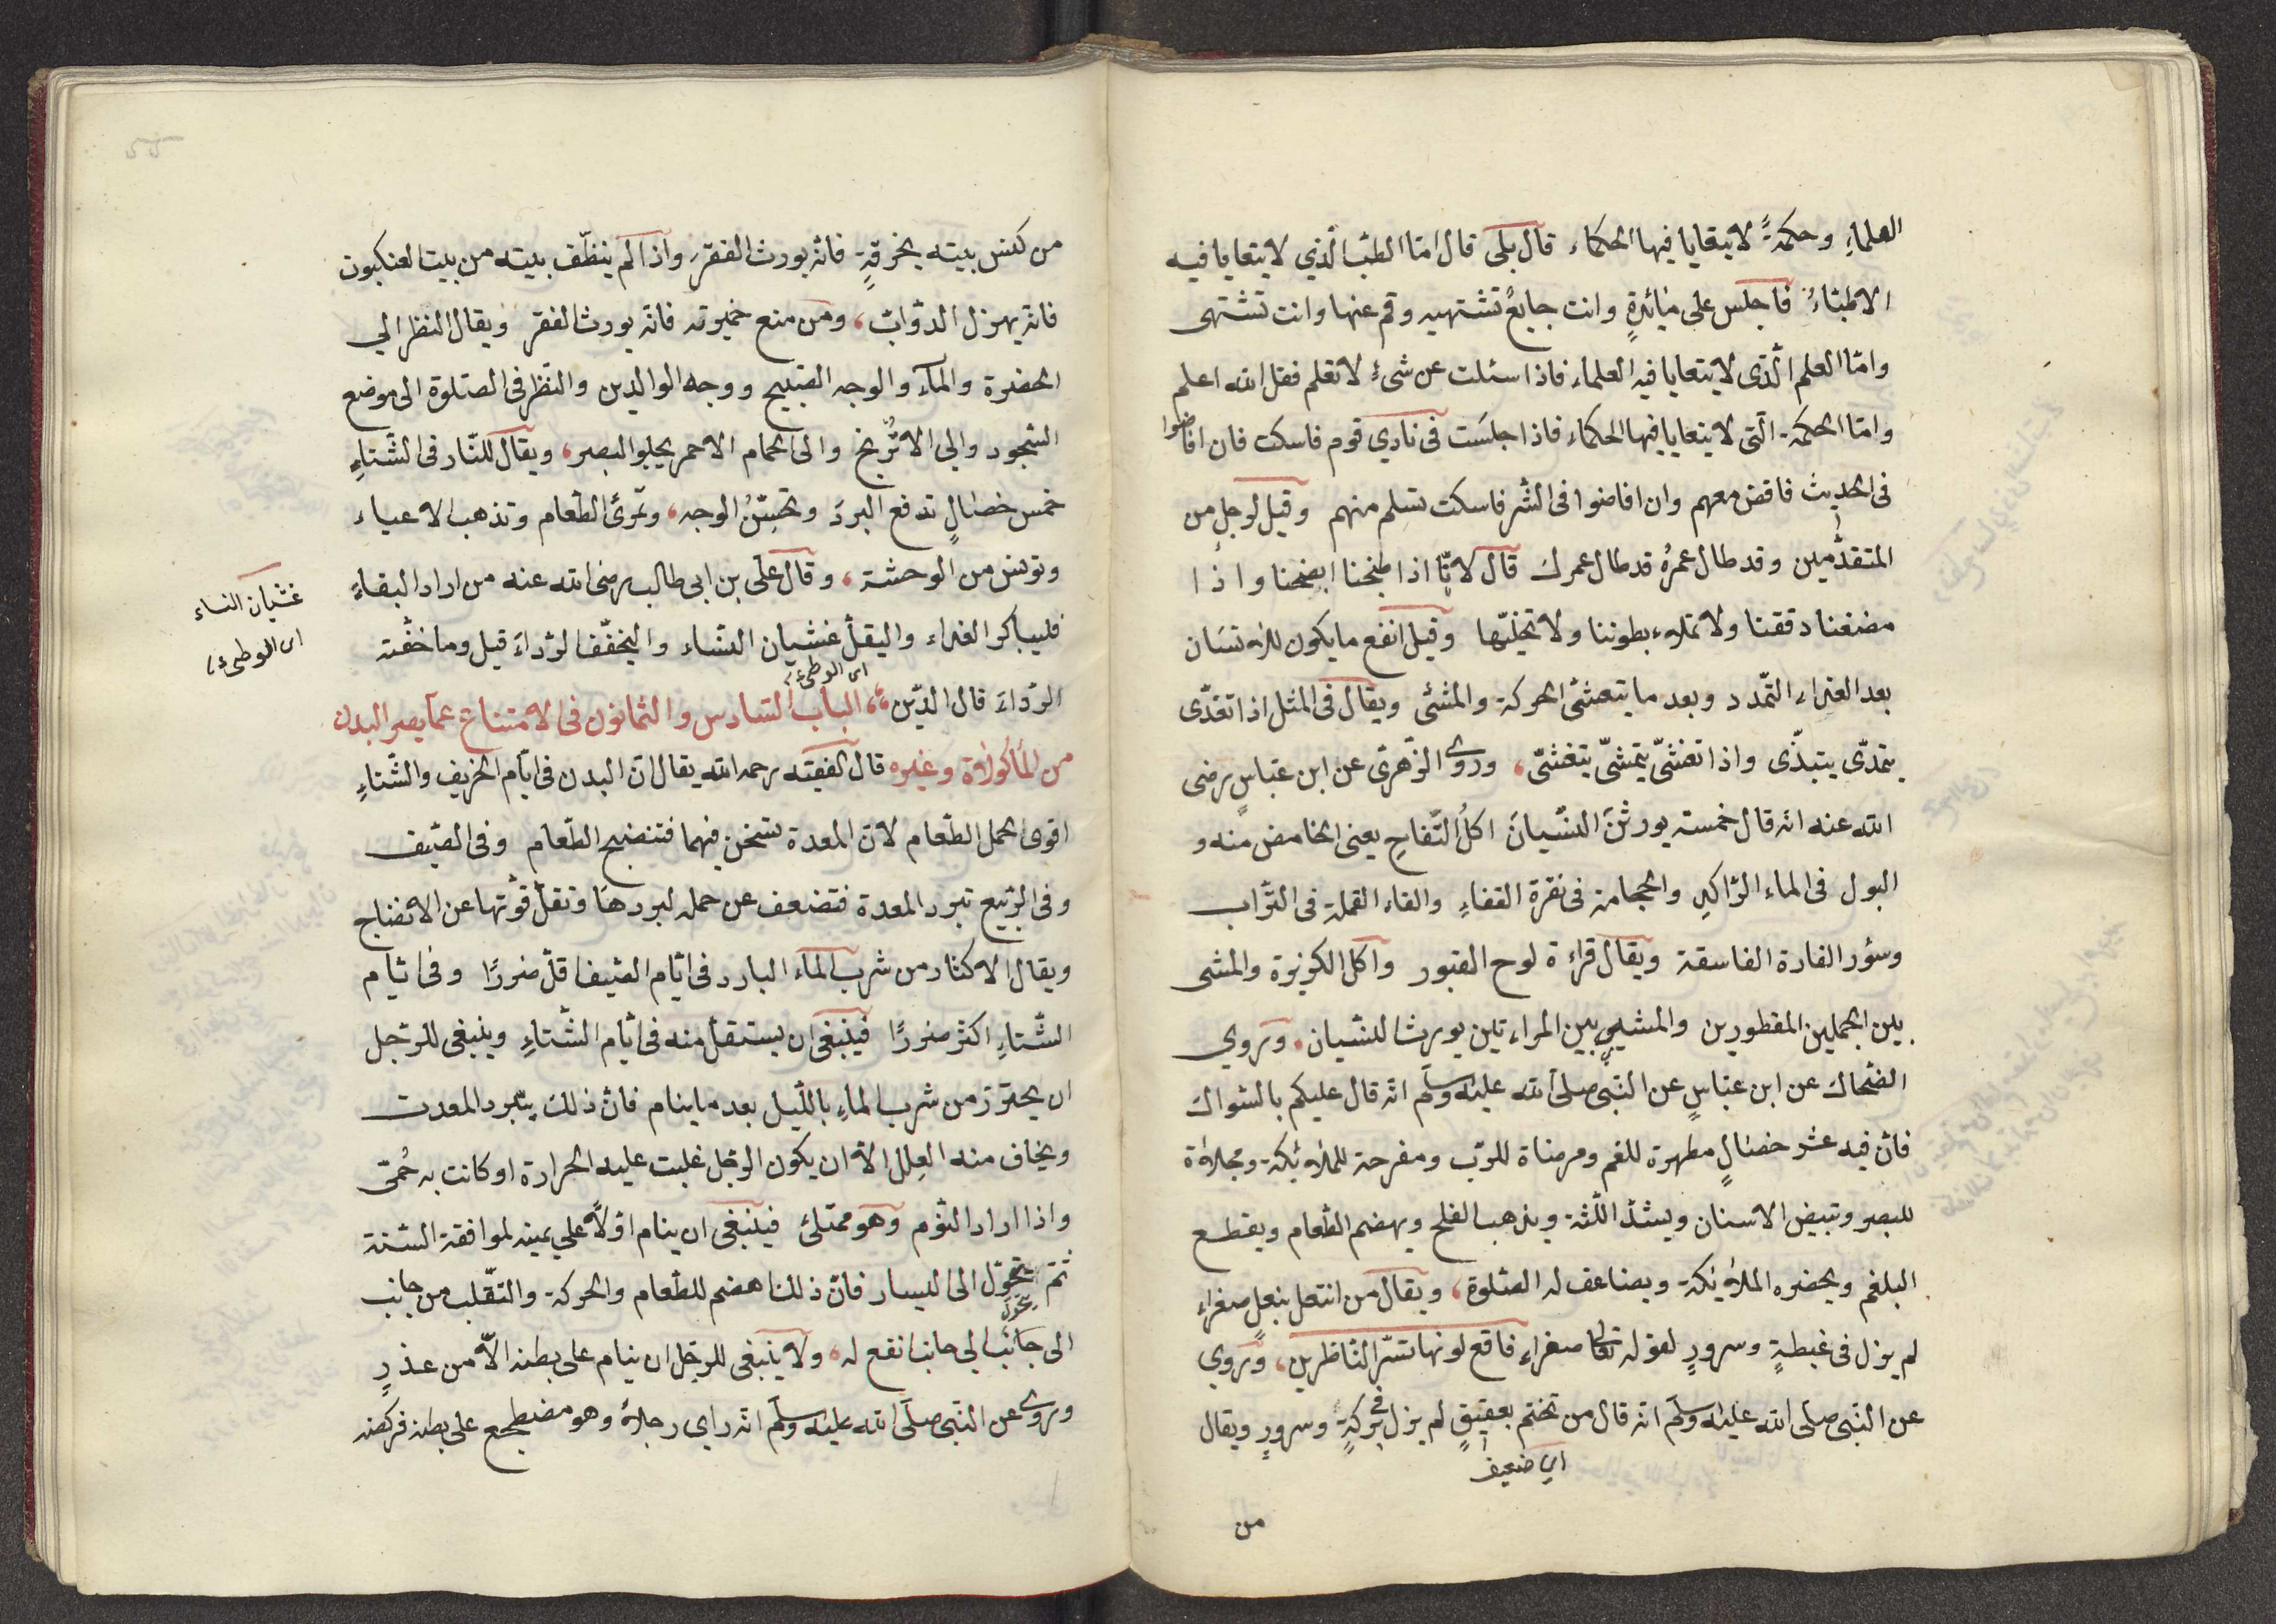 العلماءِ وحكمةً لا يتعايا فيها الحكماء قال بلى قال امّا الطبّ الّذي لا يتعايا فيه
الاطبّاءُ فاجلس على مائدةٍ وانت جايعٌ تشتهيه وقم عنها وانت تشتهى
وامّا العلم الّذى لا يتعايا فيه العلماء فاذا سئلت عن شىءٍ لا تعلم فقل الله اعلم
وامّا الحكمة الّتى لا يتعايا فيها الحكماء فاذا جلسَت فى نادي قوم فاسكت فان افاضوا
فى الحديث فافض معهم وان افاضوا فى الشّر فاسكت تسلم منهم وقيل لرجل من
المتقدّمين وقد طال عمرُه قد طال عمرك قال لانّا اذا طبخنا انضجنا واذا
مضغنا دققنا ولا نملاء بطوننا ولا نخليّها وقيل انفع ما يكون للانسَان
بعد الغداء التمّدد وبعد ما يتعشّى الحركة والمشى ويقال فى المثل اذا تغدّى
يتمدّى يتبدّى واذا تعشّى يتمشّى يتغشّى، وروى الزّهرى عن ابن عبّاسٍ رضى
الله عنه انّه قال خمسة يورثنَ النسّيانَ اكلُ التّفاحِ يعنى الحامض منه و
البول فى الماء الرّاكدِ والحجامة فى نقرة القفاءِ والقاء القملة فى التّراب
وسؤر الفارة الفاسقة ويقال قراءة لوح القبور واكل الكزبرة والمشى
بين الجملين المقطورين والمشى بين المراءتين يورث النسّيان. وروي
الضّحاك عن ابن عبّاسٍ عن النّبى صلى الله عليه وسلّم انّه قال عليكم بالسّواك
فانّ فيه عشر خصَالٍ مطهرة للفم ومرضاة للرّب ومفرحة للملائكة ومجلاة
للبصر وتبيض الاسنان ويشدّ اللّثة ويذهب القلح ويهضم الطّعام ويقطع
البلغم ويحضره الملائكة ويضاعف له الصّلوة، ويقال من انتعل بنعلٍ صفراء
لم يزل فى غبطةٍ وسرورٍ لقوله تعالى صفراء فاقع لونها تسّر النّاظرين، وروي
عن النّبى صلى الله عليه وسلّم انّه قال من تختم بعقيقٍ لم يزل فى بركةٍ وسرورٍ ويقال
اي ضعيف
من
من كنس بيته بخرقةٍ فانّه يورث الفقر، واذا لم ينظّف بيته من بيت العنكبوت
فانّه يهزل الدّوابّ، ومن منع خميرته فانّه يورث الفقر ويقال النظر الي
الخضرة والمآء والوجه القبيح ووجه الوالدين والنّظر فى الصّلوة الى موضع
السّجود والي الاترّنج والى الحمام الاحمر يجلو البصر، ويقال للنّار فى الشّتاءِ
خمس خصَالٍ تدفع البردَ وتحسّنُ الوجه، وتمرئ الطّعام وتذهب الاعياء
وتونس من الوحشة، وقال علّى بن ابى طالب رضى الله عنه من اراد البقاءَ
فليباكر الغداء واليقلّ غشيان النسّاء واليخفّف الرّداءَ قيل وما خفّة
الرّداءَ قال الدّين، الباب السّادس والثمانون فى الامتناع عمّا يضر البدن
اى الوطىء
من المأكولاة وغيره قال الفقيه رحمه الله يقال انّ البدن فى ايّام الخريف والشّتاءِ
اقوى لحمل الطّعام لانّ المعدة تسخن فيهما فتنضج الطّعام وفى الصّيف
وفى الرّبيع تبرد المعدة فتضعف عن حمله لبردهَا وتقلّ قوّتها عن الانضاج
ويقال الاكثار من شرب المآء البارد فى ايّام الصّيف اقلّ ضررًا وفى ايّام
الشّتاءِ اكثر ضررًا فينبغى ان يستقلّ منه فى ايّام الشّتاءِ وينبغى للرّجل
ان يحترز من شرب الماءِ باللّيل بعد ما ينام فانّ ذلك يبّرد المعدت
ويخاف منه العِلل الاّ ان يكون الرّجل غلبت عليه الحرارة او كانت به حُمّى
واذا اراد النّوم وهو ممتلئ فينبغى ان ينام اوّلاً علي يمينه لموافقة السّنة
ثمّ يتحوّل الى اليسار فانّ ذلك اهضم للطّعام والحركة والتّقلب من جانب
يتحوّل
الى جَانب الي جانب انفع له. ولا ينبغى للرّجل ان ينام على بطنه الاّ من عذرٍ
وروى عن النّبى صلّى الله عليه وسلّم انّه راى رجلاً وهو مضطجع على بطنه فركضه
غشيان النساء
اى الوطىء